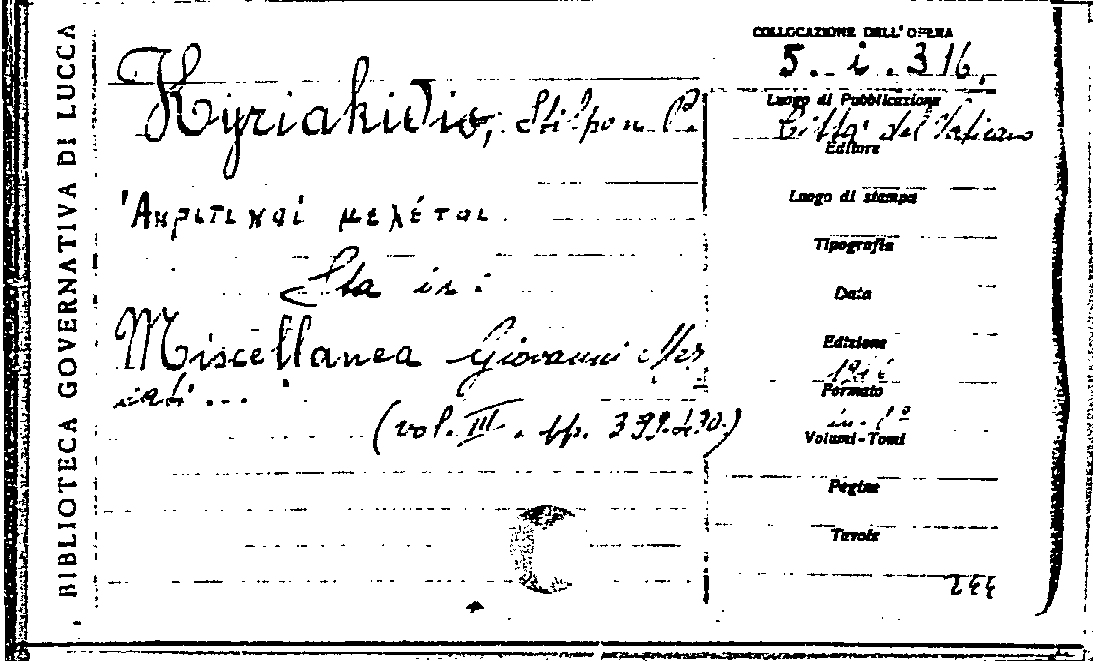 BIBLIOTECA GOVERNATIVA DI LUCCA
Kyriakidis, Stilpon P.
Ἀκριτικαί μελέται
Sta in:
Miscellanea Giovanni Mer
cati...
(vol. III. pp. 399-430.)
COLLOCAZIONE DELL' OPERA
5. i. 316.
Luogo di Pubblicazione
Città del Vaticano
Editore
Luogo di stampa
Tipografia
Data
Edizione
Formato
Volumi-Tomi
Pagine
Tavole